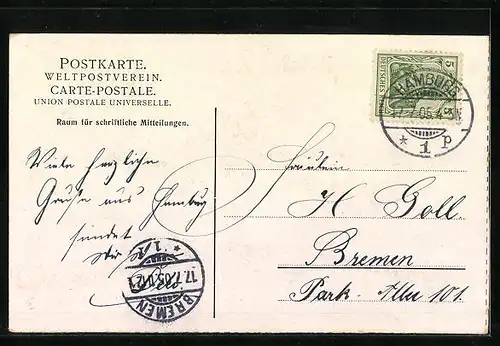 POSTKARTE.
WELTPOSTVEREIN.
CARTE-POSTALE.
UNION POSTALE UNIVERSELLE.
Raum für schriftliche Mitteilungen.
Viele herzliche
Grüße aus Hamburg
sendet
5
5
DEUTSCHES REICH
HAMBURG
17.7.05.
* 1 P
Fräulein
H. Goll.
Bremen
Park-Allee 101.
BREMEN
17.7.05.
* 1 *